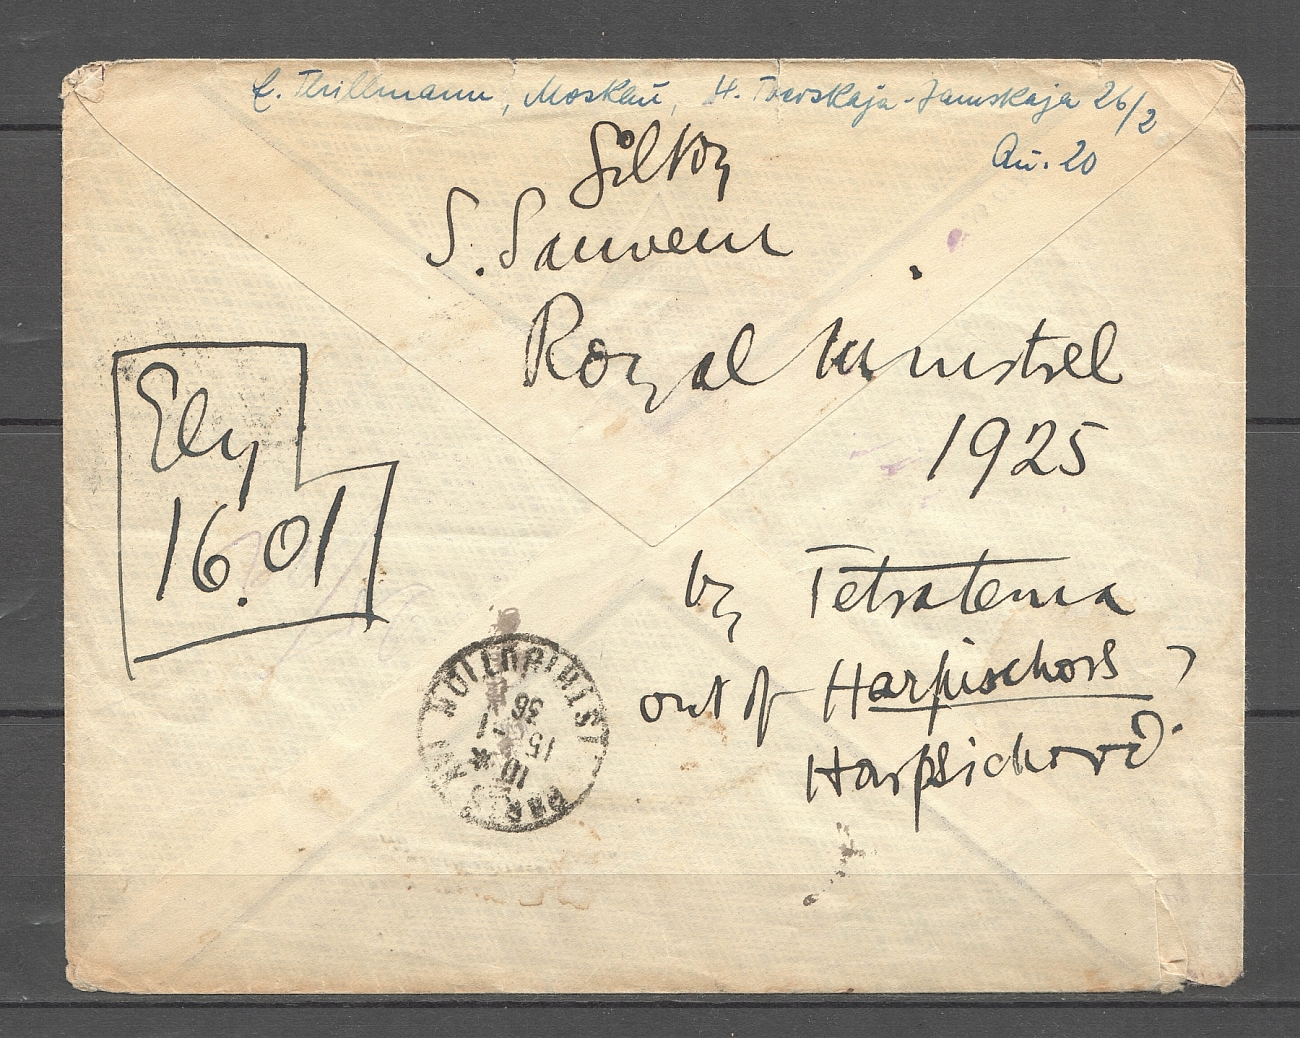 E. Thillmann, Moskau, H. Twerskaja-Jamskaja 26/2
Qu. 20
S.
Royal Minstrel
1925
by Tetratema
out of Harpischors ?
Harpsichord
Ely
16.01
PARIS XVI
10 *
15
36